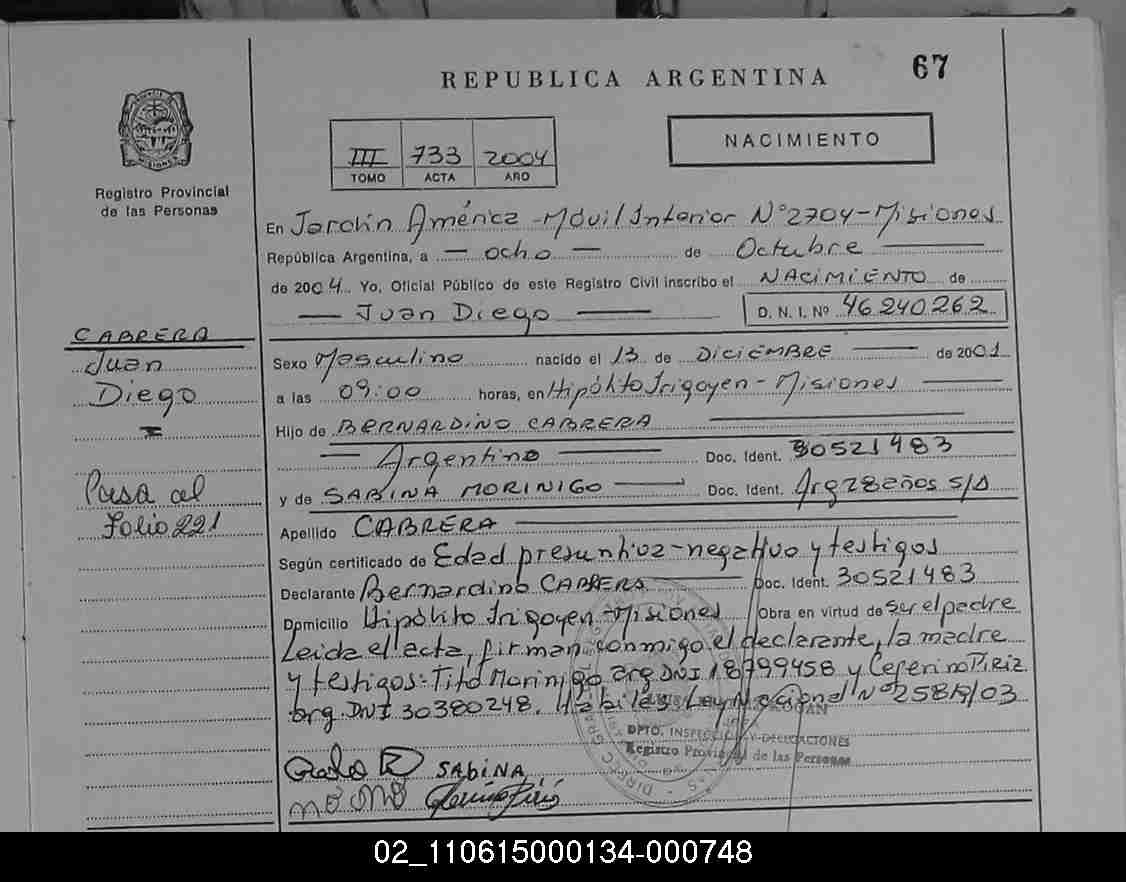 67
REPUBLICA ARGENTINA
NACIMIENTO
III 733 2004
TOMO ACTA AÑO
PROVINCIA DE MISIONES
Registro Provincial
de las Personas
En Jardín América - Móvil Interior N° 2704 - Misiones
República Argentina, a — ocho — de Octubre
de 2004. Yo, Oficial Público de este Registro Civil inscribo el NACIMIENTO de
— Juan Diego — D. N. I. Nº 46240262
CABRERA
Juan
Diego
Sexo Masculino nacido el 13 de DICIEMBRE — de 2001
a las 09:00 horas, en Hipólito Irigoyen - Misiones
Hijo de BERNARDINO CABRERA
— Argentino — Doc. Ident. 30521483
y de SABINA MORINIGO — Doc. Ident. Arg 28 años S/D
Pasa al
Folio 221
Apellido CABRERA
Según certificado de Edad presuntiva - negativo y testigos
Declarante Bernardino CABRERA Doc. Ident. 30521483
Domicilio Hipólito Irigoyen - Misiones Obra en virtud de ser el padre
Leida el acta, firman conmigo el declarante, la madre
y testigos: Tito Morinigo arg DNI 18799458 y Ceferino Piriz
arg. DNI 30380248. Habilas Ley Nacional N° 25819/03
DPTO. INSPECCION Y DELEGACIONES
Registro Provincial de las Personas
SABINA
02_110615000134-000748